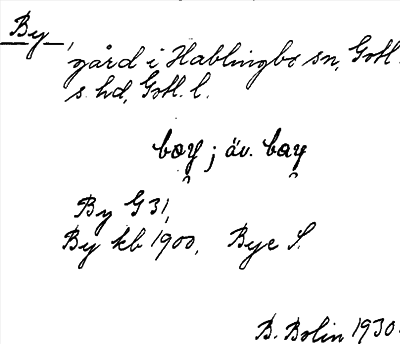 By,
gård i Hablingbo sn, Gotl.
s. hd, Gotl. l.
bοy̯ ; äv. bay̯
By G 31,
By kb 1900, Bye S.
B. Bolin 1930.